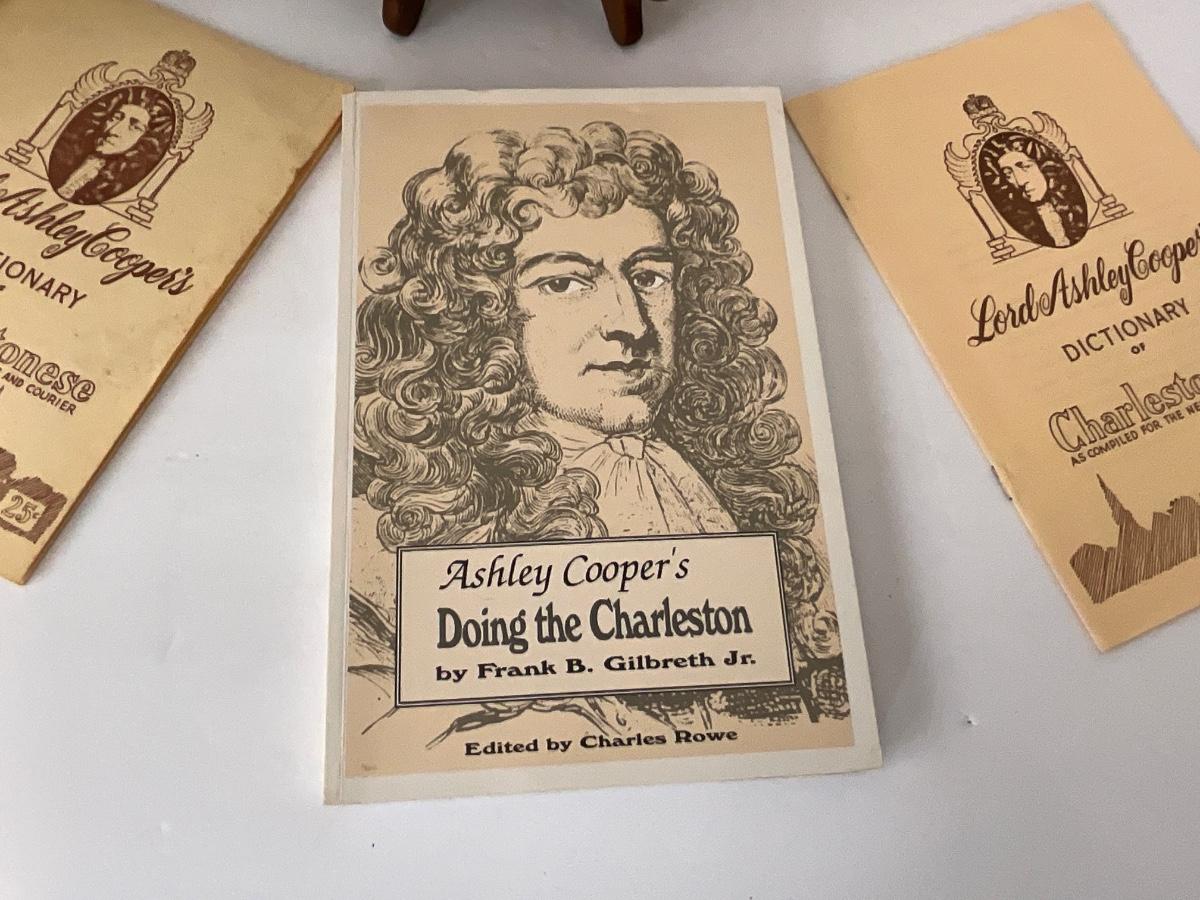 AshleyCooper's
Charlestonese
AND COURIER
25¢
Ashley Cooper's
Doing the Charleston
by Frank B. Gilbreth Jr.
Edited by Charles Rowe
Lord AshleyCooper
DICTIONARY
OF
AS COMPILED FOR THE